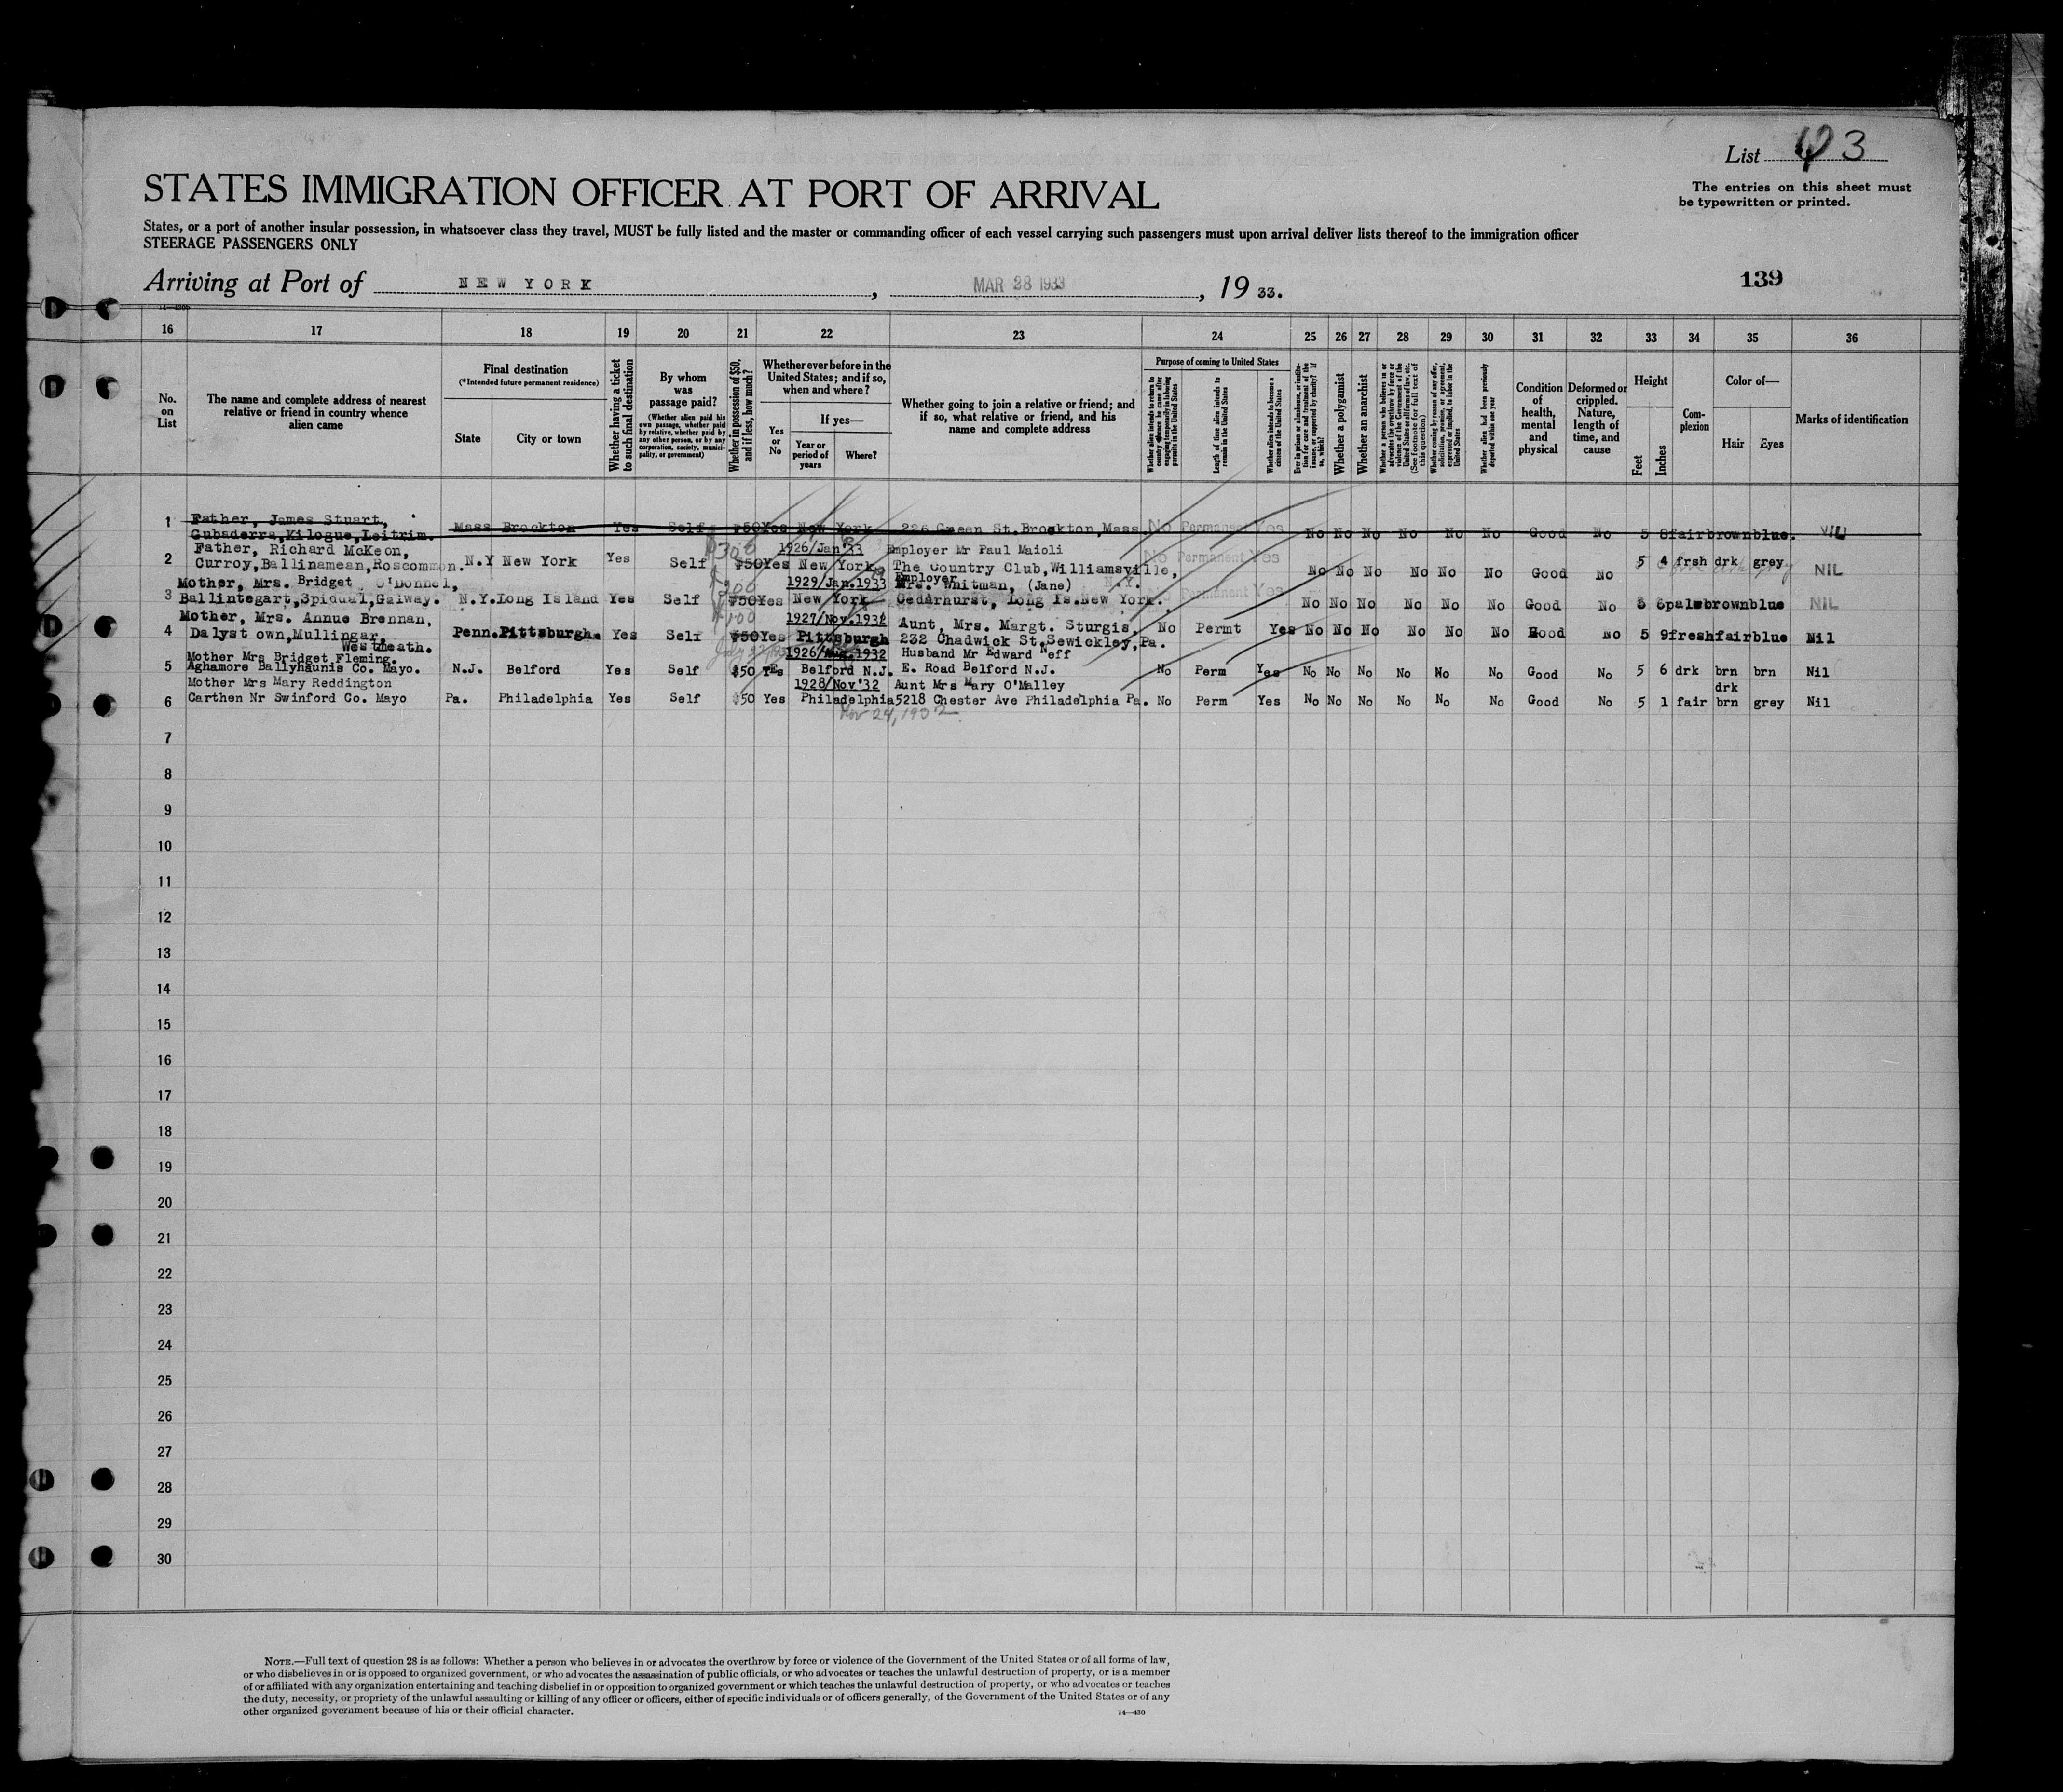 List 43
The entries on this sheet must
be typewritten or printed.
STATES IMMIGRATION OFFICER AT PORT OF ARRIVAL
States, or a port of another insular possession, in whatsoever class they travel, MUST be fully listed and the master or commanding officer of each vessel carrying such passengers must upon arrival deliver lists thereof to the immigration officer
STEERAGE PASSENGERS ONLY
Arriving at Port of NEW YORK, MAR 28 1933, 19 33.
139
16 17 18 19 20 21 22 23 24 25 26 27 28 29 30 31 32 33 34 35 36
No. on List
The name and complete address of nearest relative or friend in country whence alien came
Final destination
(*Intended future permanent residence)
State
City or town
Whether having a ticket to such final destination
By whom was passage paid?
(Whether alien paid his own passage, whether paid by relative, whether paid by any other person, or by any corporation, society, municipality, or government)
Whether in possession of $50, and if less, how much?
Whether ever before in the United States; and if so, when and where?
Yes or No
If yes—
Year or period of years
Where?
Whether going to join a relative or friend; and if so, what relative or friend, and his name and complete address
Purpose of coming to United States
Whether alien intends to return to country whence he came after engaging temporarily in laboring pursuits in the United States
Length of time alien intends to remain in the United States
Whether alien intends to become a citizen of the United States
Ever in prison or almshouse, or institution for care and treatment of the insane, or supported by charity? If so, which?
Whether a polygamist
Whether an anarchist
Whether a person who believes in or advocates the overthrow by force or violence of the Government of the United States or all forms of law, etc. (See footnote for full text of this question)
Whether coming by reason of any offer, solicitation, promise, or agreement, expressed or implied, to labor in the United States
Whether alien had been previously deported within one year
Condition of health, mental and physical
Deformed or crippled. Nature, length of time, and cause
Height
Feet
Inches
Complexion
Color of—
Hair
Eyes
Marks of identification
1 Father, James Stuart,
Gubaderra,Kilogue,Leitrim. Mass Brockton Yes Self $50 Yes New York 226 Green St.Brockton,Mass. No Permanent Yes No No No No No No Good No 5 8 fair brown blue. Nil
2 Father, Richard McKeon, $300 1926/Jan'33 Employer Mr Paul Maioli
Curroy,Ballinamean,Roscommon. N.Y New York Yes Self $50 Yes New York The Country Club,Williamsville, N.Y. No Permanent Yes No No No No No No Good No 5 4 frsh drk grey NIL
3 Mother, Mrs. Bridget O'Donnel, $200 1929/Jan.1933 Employer Mrs. Whitman, (Jane)
Ballintegart,Spidual,Galway. N.Y. Long Island Yes Self $50 Yes New York Cedarhurst, Long Is.New York. Permanent Yes No No No No No No Good No 5 6 pale brown blue NIL
4 Mother, Mrs. Annue Brennan, $100 1927/Nov.1932 Aunt, Mrs. Margt. Sturgis,
Dalyst own,Mullingar, Westmeath. Penn. Pittsburgh. Yes Self $50 Yes Pittsburgh 232 Chadwick St,Sewickley,Pa. No Permt Yes No No No No No No Good No 5 9 fresh fair blue Nil
5 Mother Mrs Bridget Fleming. 1926/Aug.1932 Husband Mr Edward Neff
Aghamore Ballyhaunis Co. Mayo. N.J. Belford Yes Self $50 Yes Belford N.J. E. Road Belford N.J. No Perm Yes No No No No No No Good No 5 6 drk brn brn Nil
6 Mother Mrs Mary Reddington 1928/Nov'32 Aunt Mrs Mary O'Malley drk
Carthen Nr Swinford Co. Mayo Pa. Philadelphia Yes Self $50 Yes Philadelphia 5218 Chester Ave Philadelphia Pa. No Perm Yes No No No No No No Good No 5 1 fair brn grey Nil
Nov 24, 1932
7
8
9
10
11
12
13
14
15
16
17
18
19
20
21
22
23
24
25
26
27
28
29
30
NOTE.—Full text of question 28 is as follows: Whether a person who believes in or advocates the overthrow by force or violence of the Government of the United States or of all forms of law,
or who disbelieves in or is opposed to organized government, or who advocates the assassination of public officials, or who advocates or teaches the unlawful destruction of property, or is a member
of or affiliated with any organization entertaining and teaching disbelief in or opposition to organized government or which teaches the unlawful destruction of property, or who advocates or teaches
the duty, necessity, or propriety of the unlawful assaulting or killing of any officer or officers, either of specific individuals or of officers generally, of the Government of the United States or of any
other organized government because of his or their official character.
14—430